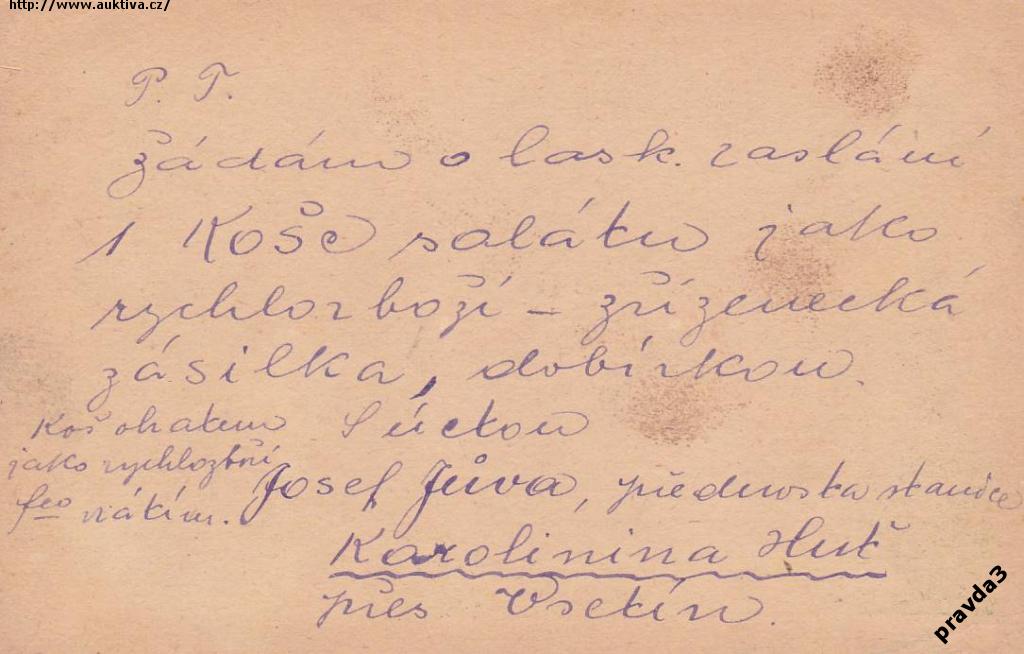 http://www.auktiva.cz/
P. T.
Žádám o lask. zaslání
1 Koše salátu jako
rychlozboží – zřízenecká
zásilka, dobírkou.
S úctou
Koš obratem
jako rychlozboží
fco vrátím.
Josef Jůva, přednosta stanice
Karolinina Huť
přes Vsetín.
pravda3